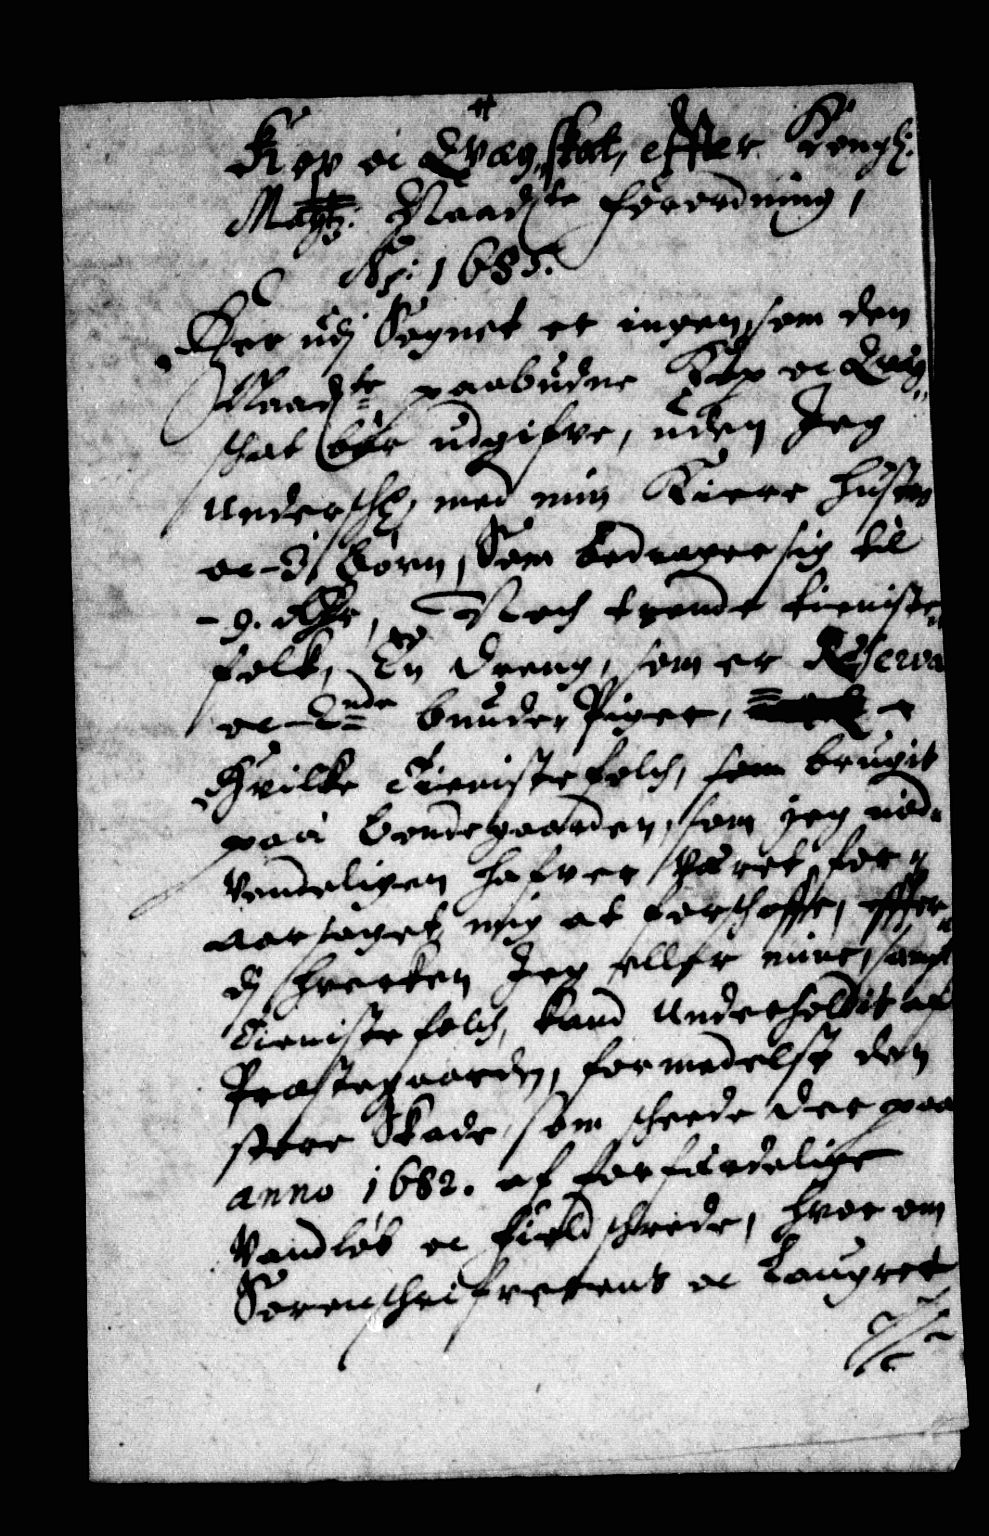 Kop oc Qvæg skat, effter Kongl:
Maytz: Naadste forordning,
Ao: 1683.
Her udj Sognet er ingen som den
Naadste paabudne Kop oc Qvæg
skat bør udgifve, uden Jeg
underschr. med min Kiere hustru
oc 3 børn, Som bedrager sig til
Noch trende tieniste
folk, En dreng, som er Reserva
oc 2nde bunder Piger,
Hvilke Tienistefolch, som brugis
paa bondegaarden, som jeg nød-
vendeligen hafver været for
aarsaget mig at forschaffe, effter
dj hverken Jeg eller mine, sampt
Tienistefolch, kand underholdis af
Præstegaarden, formedelst den
store Skade, som skeede der paa
anno 1682. af forfærdelige
Vandløb oc fieldschrede, hvor om
Sorenschrifverens oc Laugret